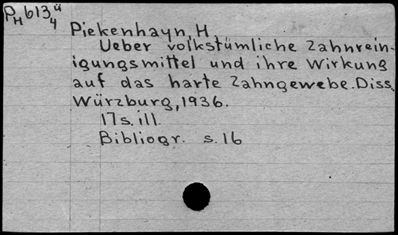 PH613ü4
Piekenhayn, H
Ueber volkstümliche Zahnrein-
igungsmittel und ihre Wirkung
auf das harte Zahngewebe. Diss.
Würzburg, 1936.
17s. ill.
Bibliogr. s. 16